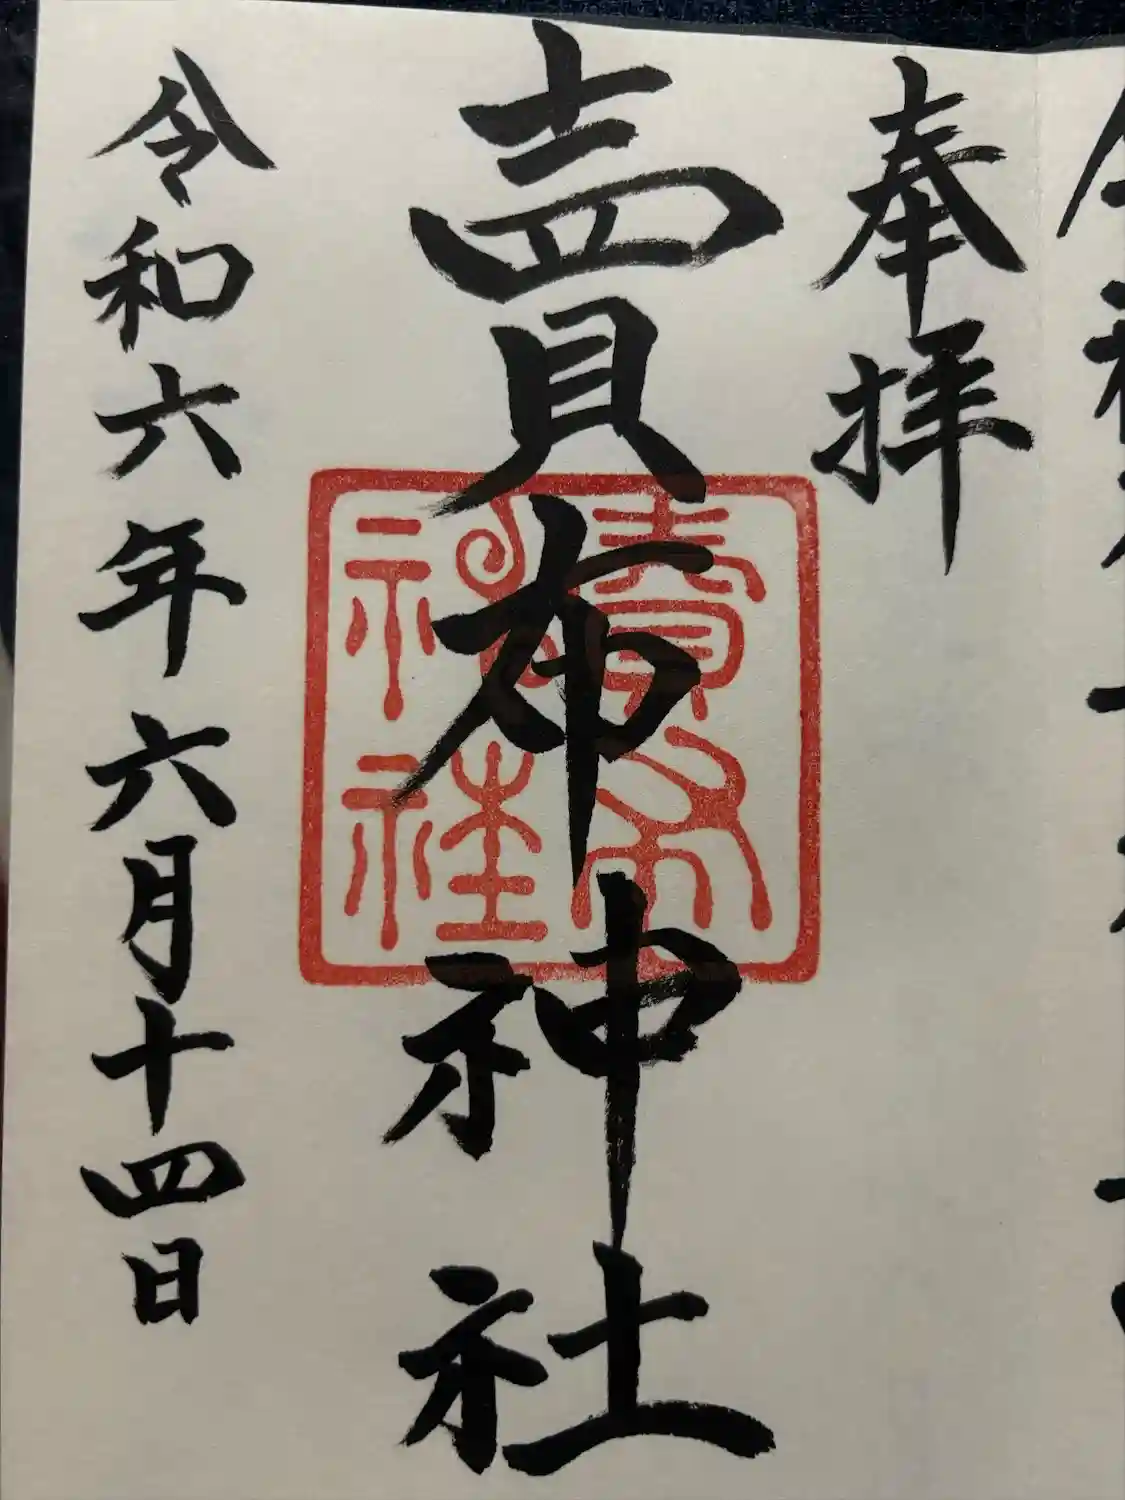 奉拝
賣布神社
賣布神社
令和六年六月十四日